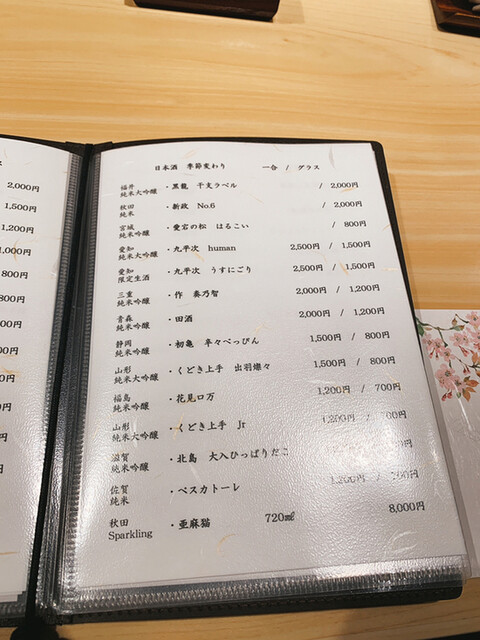 2,000円
1,500円
1,200円
1,000円
800円
800円
日本酒 季節変わり 一合 / グラス
福井 純米大吟醸 ・黒龍 干支ラベル / 2,000円
秋田 純米 ・新政 No.6 / 2,000円
宮城 純米吟醸 ・愛宕の松 はるこい / 800円
愛知 純米大吟醸 ・九平次 human 2,500円 / 1,500円
愛知 限定生酒 ・九平次 うすにごり 2,500円 / 1,500円
三重 純米吟醸 ・作 奏乃智 2,000円 / 1,200円
青森 純米吟醸 ・田酒 2,000円 / 1,200円
静岡 純米吟醸 ・初亀 べっぴん 1,500円 / 800円
山形 純米大吟醸 ・くどき上手 出羽燦々 1,500円 / 800円
福島 純米吟醸 ・花見口万 1,200円 / 700円
山形 純米大吟醸 ・くどき上手 Jr 1,200円 / 700円
滋賀 純米吟醸 ・北島 大入ひっぱりだこ 1,200円
佐賀 純米 ・ペスカトーレ 1,200円 / 700円
秋田 Sparkling ・亜麻猫 720㎖ 8,000円